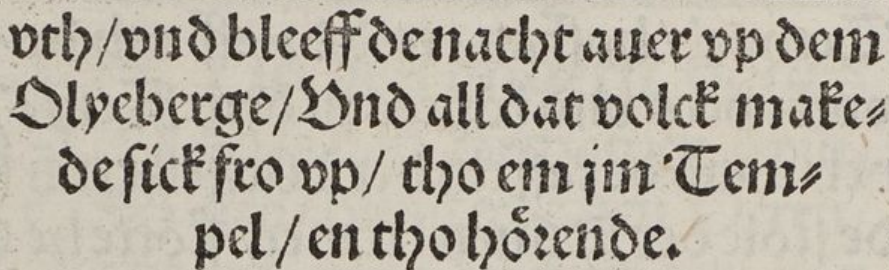 vth/vnd bleeff de nacht auer vp dem
Olyeberge/Vnd all dat volck make⸗
de sick fro vp/ tho em jm Tem⸗
pel/en tho hoͤrende.